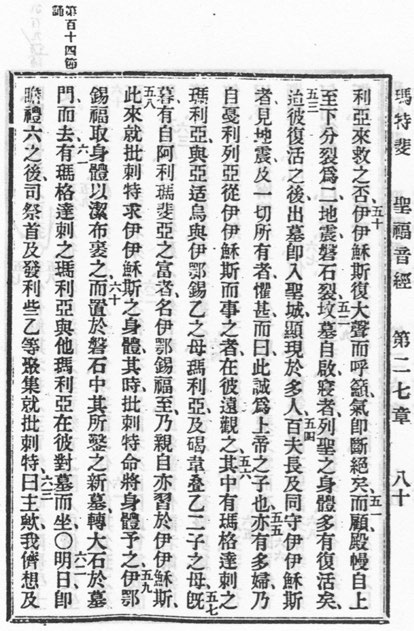 瑪特斐 聖福音經 第二七章 八十
利亞來救之否、五十伊伊穌斯復大聲而呼籲、氣卽斷絕矣、五一而顧殿幔自上
至下分裂爲二、地震、磐石裂、五二墳墓自啟、寢者列聖之身體多有復活矣、
五三迨彼復活之後、出墓卽入聖城、顯現於多人、五四百夫長及同守伊伊穌斯
者、見地震及一切所有者、懼甚而曰、此誠爲上帝之子也、五五亦有多婦、乃
自戛利列亞從伊伊穌斯而事之者、在彼遠觀之、五六其中有瑪格達剌之
瑪利亞、與亞适烏與伊鄂錫乙之母瑪利亞、及碣韋疊乙二子之母、五七旣
暮、有自阿利瑪斐亞之富者、名伊鄂錫福至、乃親自亦習於伊伊穌斯、
五八此來就批剌特求伊伊穌斯之身體、其時批剌特命將身體予之、五九伊鄂
錫福取身體、以潔布裹之、六十而置於磐石中其所鑿之新墓、轉大石於墓
門而去、六一有瑪格達剌之瑪利亞、與他瑪利亞、在彼對墓而坐、○六二明日卽
瞻禮六之後、司祭首及發利些乙等聚集就批剌特、六三曰、主歟、我儕想及
第百十四節
誦